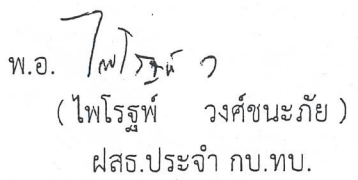 พ.อ. ไพโรฐพ์ ว
( ไพโรฐพ์ วงศ์ชนะภัย )
ฝสธ.ประจำ กบ.ทบ.